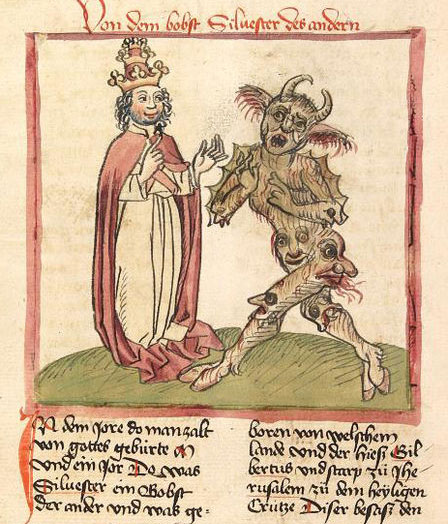 Von dem bobst Siluester des andern
IN dem jore do man zalt
von gottes gebürte M
vnd ein jor Do was
Siluester ein Bobst
der ander vnd was ge=
boren von welschem
lande vnd der hieß Gil
bertus vnd starp zü Jhe
rusalem zü dem heyligen
Crütze Diser besaß den